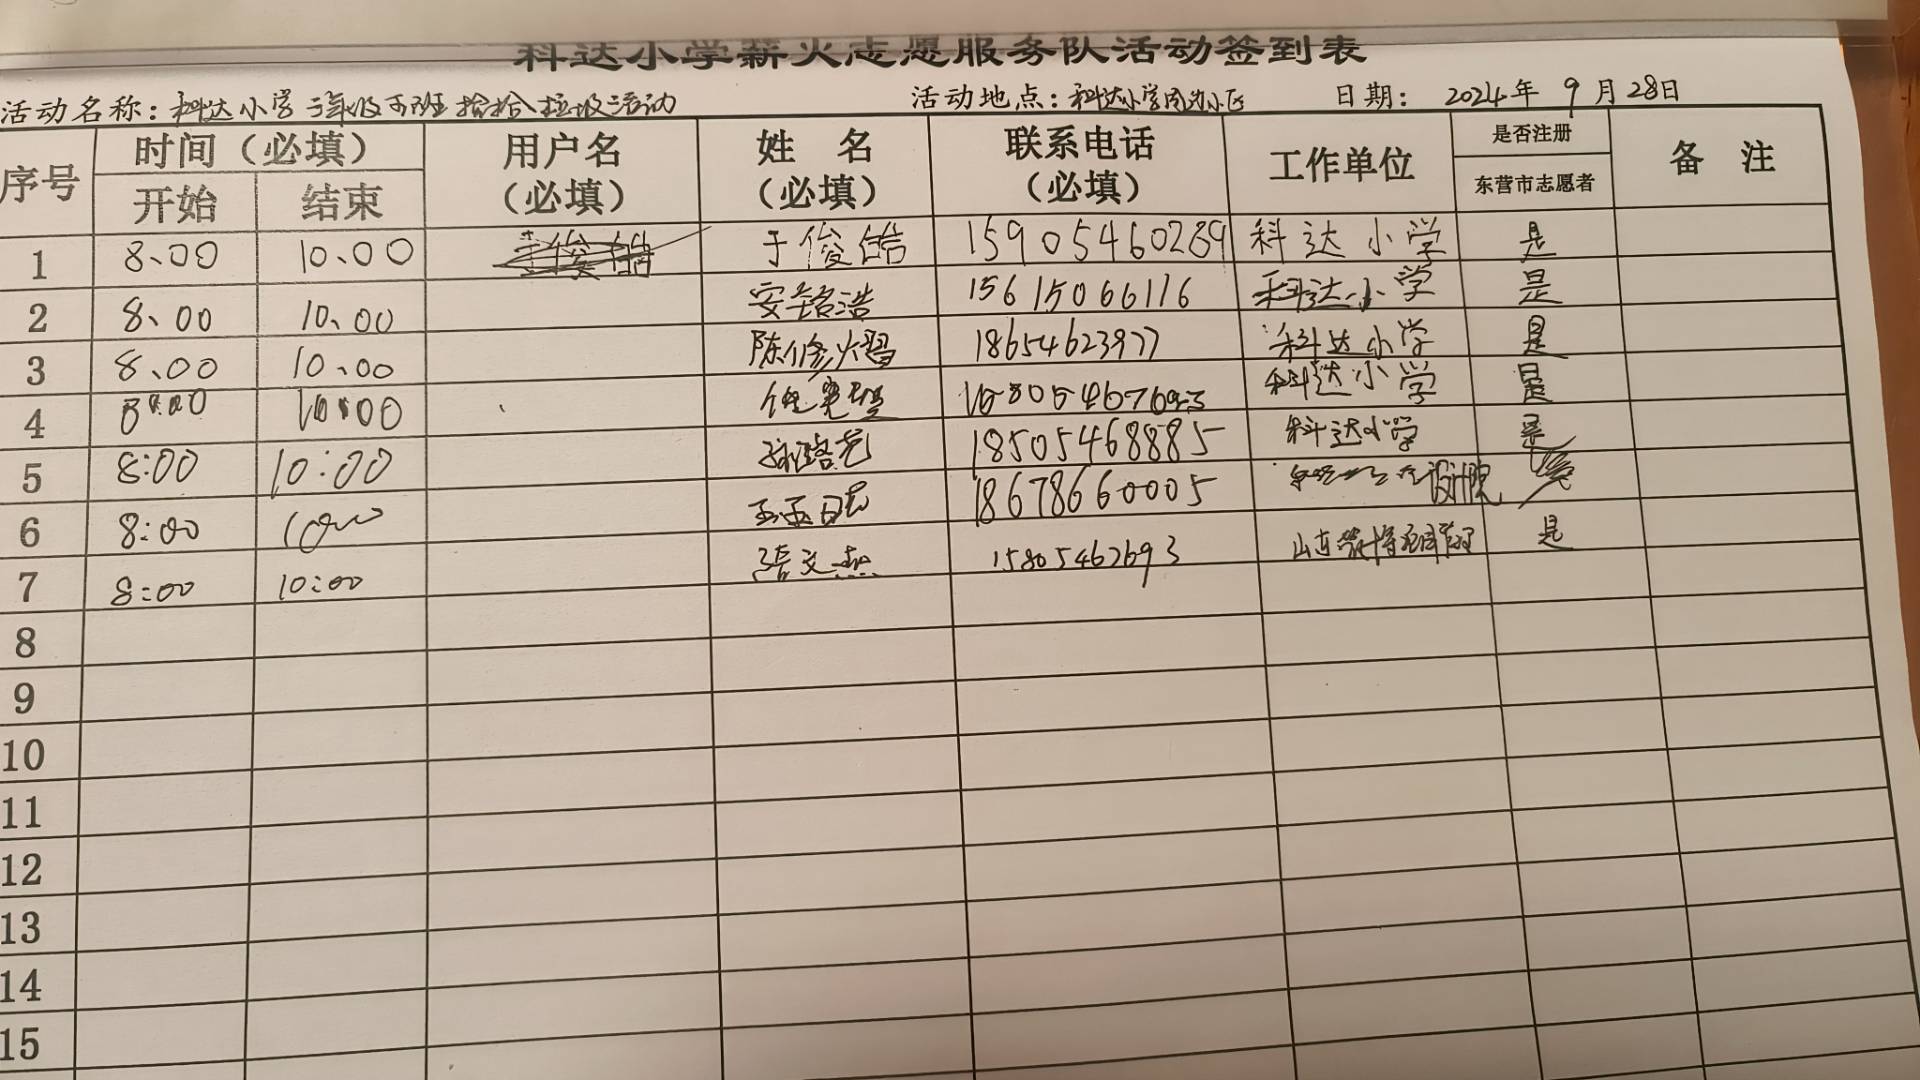 科达小学薪火志愿服务队活动签到表
活动名称：科达小学三年级五班捡拾垃圾活动 活动地点：科达小学周边小区 日期：2024年9月28日
序号 时间（必填） 用户名（必填） 姓 名（必填） 联系电话（必填） 工作单位 是否注册 备 注
开始 结束 东营市志愿者
1 8.00 10.00 于俊皓 15905460289 科达小学 是
2 8、00 10、00 安铭浩 15615066116 科达小学 是
3 8、00 10.00 陈修熠 18654623977 科达小学 是
4 8:00 10:00 科达小学 是
5 8:00 10:00 18505468885 科达小学 是
6 8:00 10:00 18678660005 设计院
7 8:00 10:00 张文杰 15805467693 是
8
9
10
11
12
13
14
15